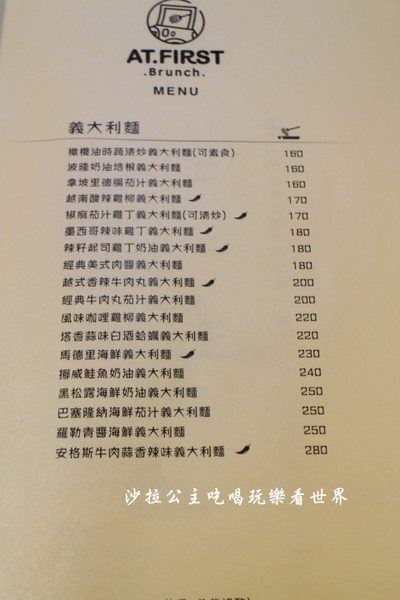 AT.FIRST
.Brunch.
MENU
義大利麵
橄欖油時蔬清炒義大利麵(可素食) 160
波隆奶油培根義大利麵 160
拿坡里德腸茄汁義大利麵 160
越南酸辣雞柳義大利麵 170
椒麻茄汁雞丁義大利麵(可清炒) 170
墨西哥辣味雞丁義大利麵 180
辣籽起司雞丁奶油義大利麵 180
經典美式肉醬義大利麵 180
越式香辣牛肉丸義大利麵 200
經典牛肉丸茄汁義大利麵 200
風味咖哩雞柳義大利麵 220
塔香蒜味白酒蛤蠣義大利麵 220
馬德里海鮮義大利麵 230
挪威鮭魚奶油義大利麵 240
黑松露海鮮奶油義大利麵 250
巴塞隆納海鮮茄汁義大利麵 250
羅勒青醬海鮮義大利麵 250
安格斯牛肉蒜香辣味義大利麵 280
沙拉公主吃喝玩樂看世界